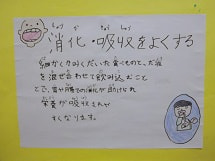 しょう か きゅうしゅう
消化・吸収をよくする
細かくかみくだいた食べものと、だ液
を混ぜ合わせて飲み込むこと
とで、胃や腸での消化が助けられ
栄養が吸収されや
すくなります。